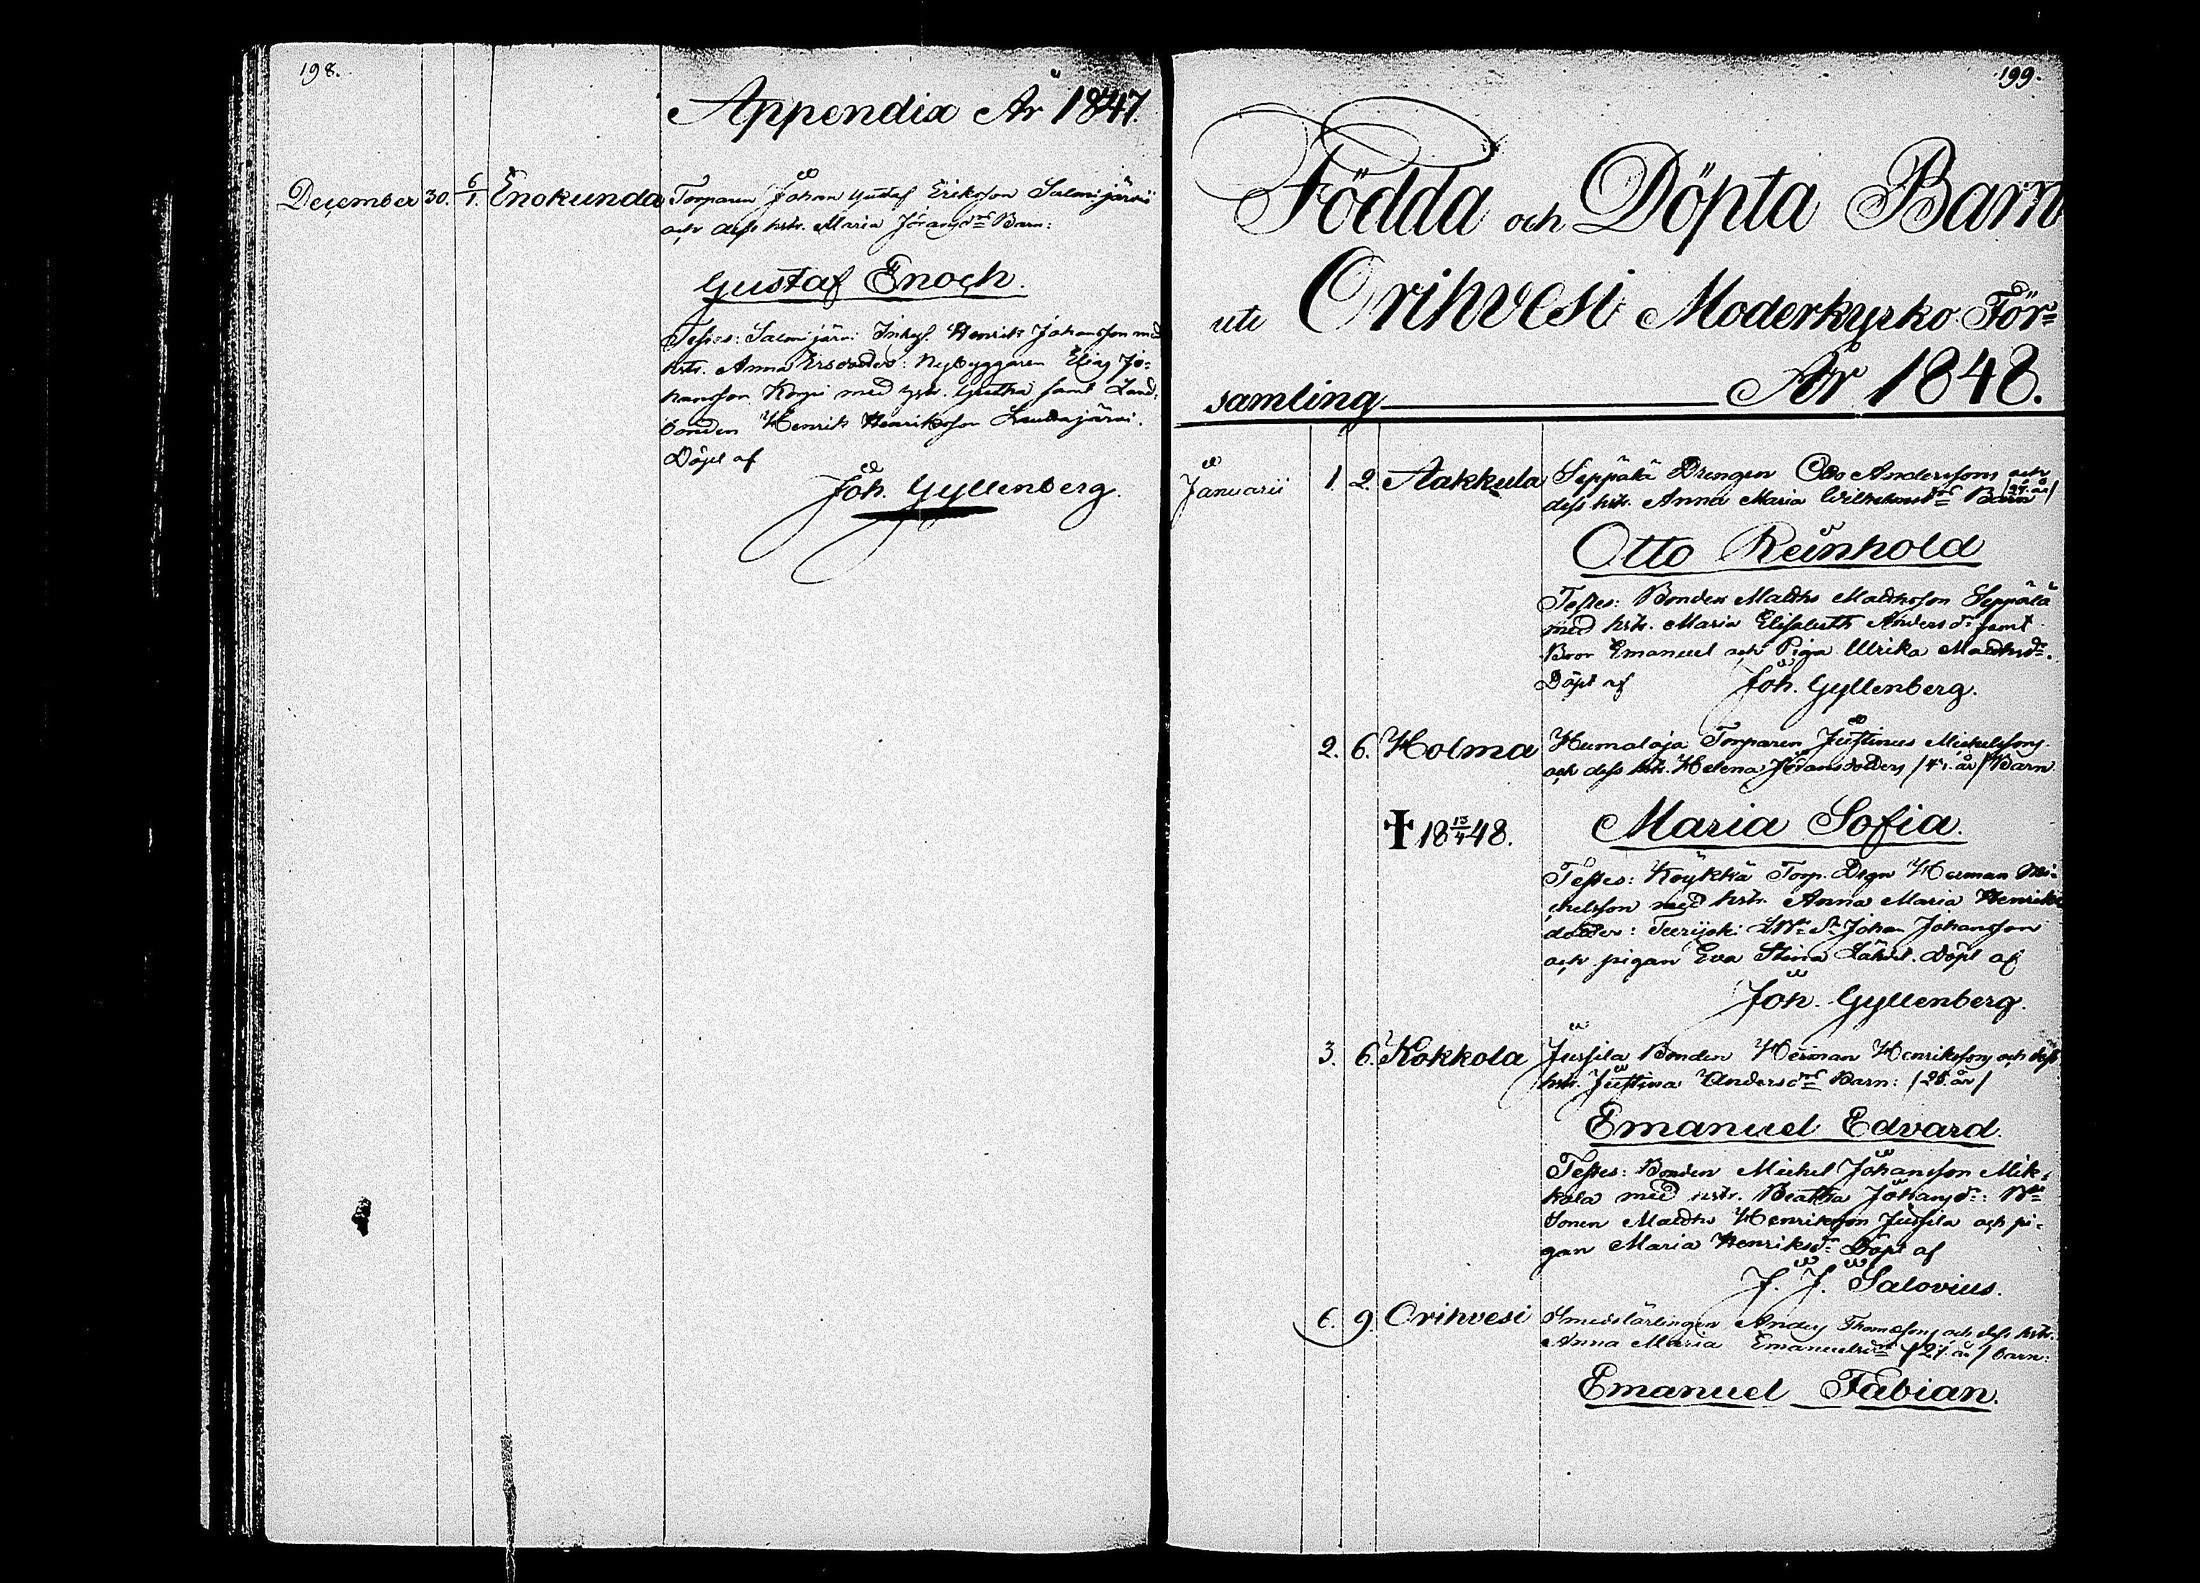 198.
Appendix År 1847.
December 30. 6/1. Enokunda Torparen Johan Gustaf Eriksson Salmijärvi
och dess hstr. Maria Göransdr Barn:
Gustaf Enoch.
Testes: Salmijärvi Inhys. Henrik Johansson med
hstr. Anna Ersdotter: Nybyggaren Elias Jo-
hansson Korpi med hstr. Gretha samt Land-
bonden Henrik Henriksson
Döpt af
Joh. Gyllenberg.
199.
Födda och Döpta Barn
uti Orihvesi Moderkyrko För-
samling År 1848.
Januarii 1. 2. Aakkula Seppälä Drengen Otto Anderssons och
dess hstr. Anna Maria Wilhelmsdrs Barn /27. år/
Otto Reinhold
Testes: Bonden Matths Matthsson Seppälä
med hstr. Maria Elisabeth Andersdr samt
Bror Emanuel och Piga Ulrika Matthsdr.
Döpt af Joh. Gyllenberg.
2. 6. Holma Humaloja Torparen Justinus Michelssons
och dess hstr. Helena Göransdotters /41. år/ Barn
✝ 18 13/4 48. Maria Sofia.
Testes: Köykkä Torp. Drgn Herman Mi-
chelsson med hstr. Anna Maria Henriks
dotter: Johan Johansson
och pigan Eva Stina Döpt af
Joh. Gyllenberg.
3. 6. Kokkola Jussila Bonden Herman Henrikssons och dess
hstr. Justina Andersdrs Barn: /28. år/
Emanuel Edvard.
Testes: Bonden Michel Johansson Mik-
kola med hstr. Beatha Johansdr: Bde
Sonen Matths Henriksson Jussila och pi-
gan Maria Henriksdr Döpt af
J. J. Salovius.
6. 9. Orihvesi Smedslärlingen Anders Thomassons och dess hstr.
Anna Maria Emanuelsdrs /27. år/ barn:
Emanuel Fabian.